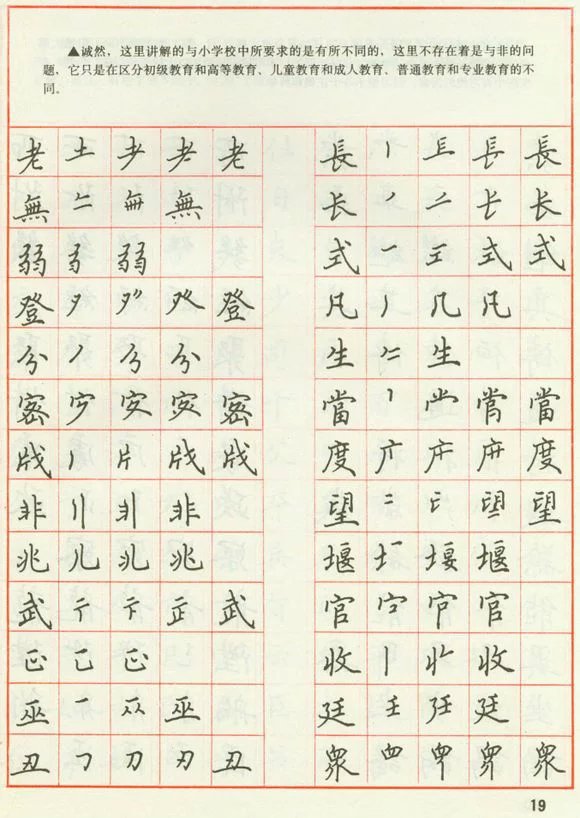 ▲诚然，这里讲解的与小学校中所要求的是有所不同的，这里不存在着是与非的问
题，它只是在区分初级教育和高等教育、儿童教育和成人教育、普通教育和专业教育的不
同。
老 土 耂 老 長 丨 長 長
無 無 长 二 长
弱 弓 弱 式 一 三 式 式
登 癶 登 凡 丿 几 凡
分 丿 分 分 生 生
密 密 當 尚 當
戕 片 戕 度 广 度
非 非 非 望 二 望
兆 儿 兆 堰 堰 堰
武 武 官 宀 官 官
正 正 收 丨 收
巫 一 巫 廷 壬 廷
丑 刀 丑 衆 血 衆 衆
19